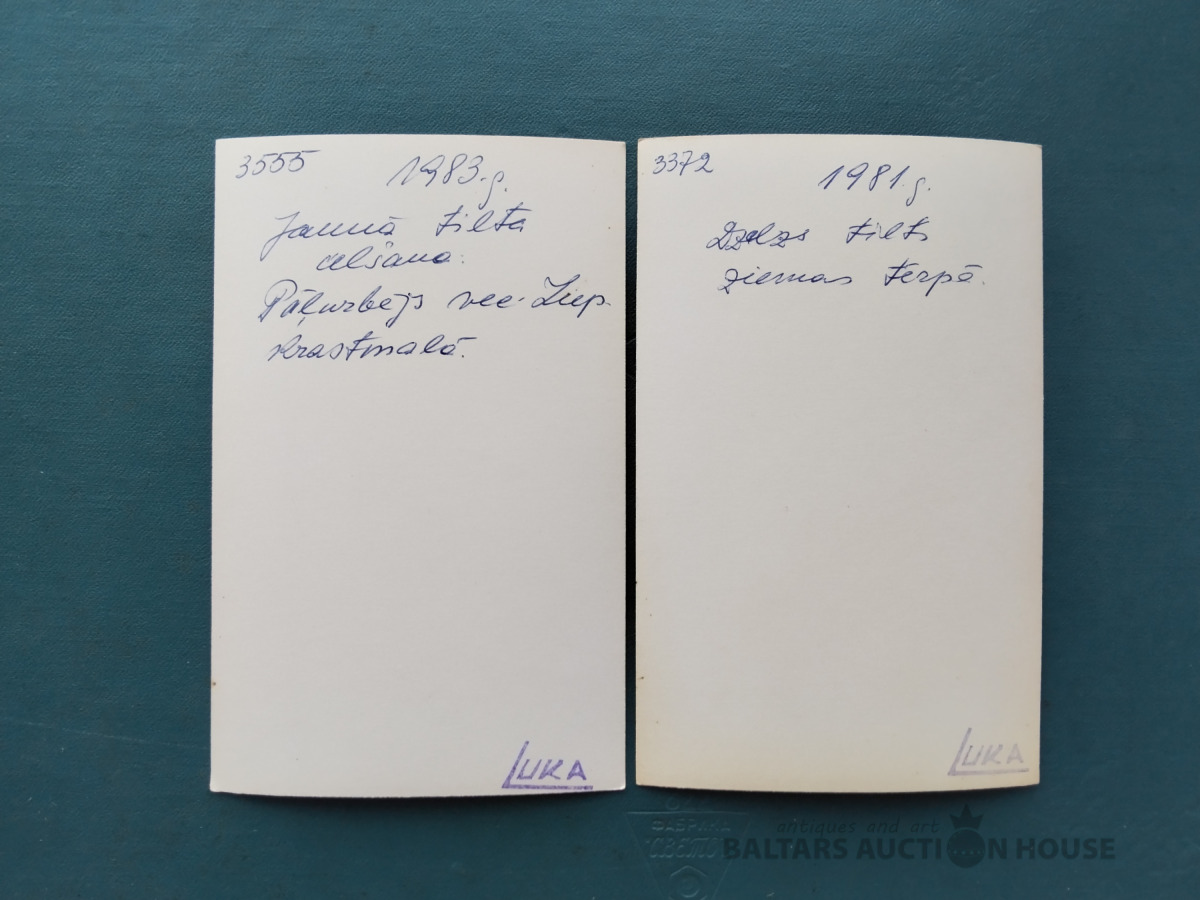 3555
1983.g.
Jaunā tilta
celšana.
Pāļurbējs vec-Liep.
krastmalā.
LUKA
3372
1981.g.
Dzelzs tilts
ziemas tērpā.
LUKA
ФАБРИКА
antiques and art
BALTARS AUCTION HOUSE